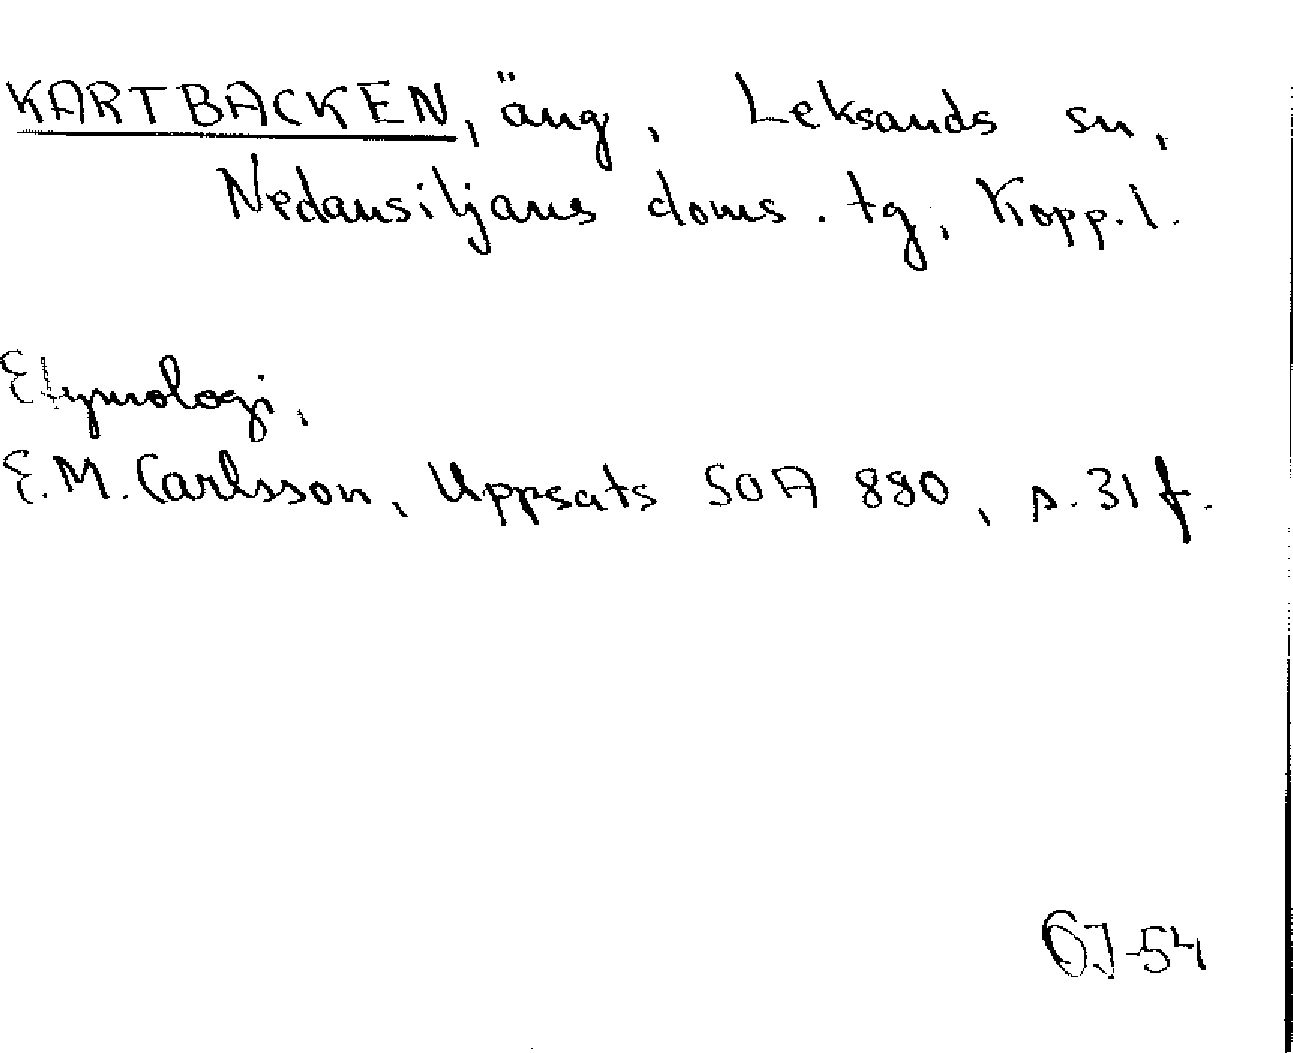 KARTBACKEN, äng, Leksands sn,
Nedansiljans doms. tg, Kopp. l.
Etymologi,
E. M. Carlsson, Uppsats SOA 880, s. 31 f.
ÖJ-54